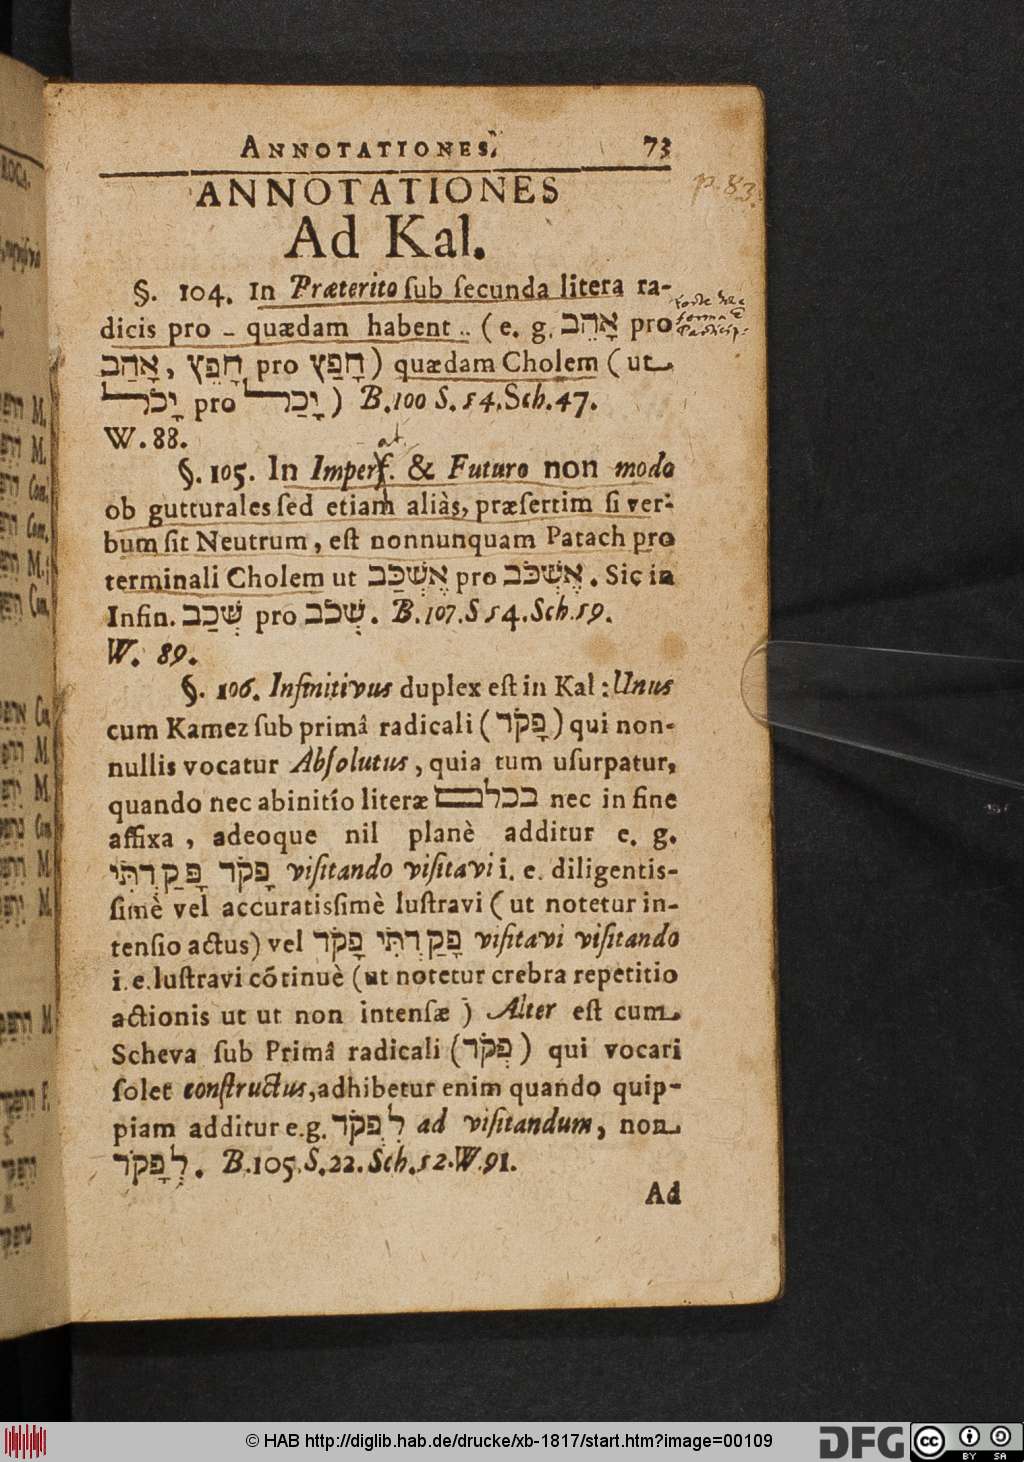 ANNOTATIONES. 73
p. 83.
ANNOTATIONES
Ad Kal.
§. 104. In Præterito ſub ſecunda litera ra-
dicis pro _ quædam habent .. ( e. g. אָהֵב pro
אָהַב, חָפֵץ pro חָפַץ ) quædam Cholem ( ut
יָכֹל pro יָכַל ) B.100 S. 54. Sch. 47.
W. 88.
§. 105. In Imperf. & Futuro non modo
ob gutturales ſed etiam aliàs, præſertim ſi ver-
bum ſit Neutrum, eſt nonnunquam Patach pro
terminali Cholem ut אֶשְׁכַּב pro אֶשְׁכֹּב. Sic in
Infin. שְׁכַב pro שְׁכֹב. B. 107. S 54. Sch. 59.
W. 89.
§. 106. Infinitivus duplex eſt in Kal : Unus
cum Kamez ſub primâ radicali ( פָּקֹד ) qui non-
nullis vocatur Abſolutus, quia tum uſurpatur,
quando nec abinitio literæ בכלם nec in fine
affixa, adeoque nil planè additur e. g.
פָּקֹד פָּקַדְתִּי viſitando viſitavi i. e. diligentis-
ſimè vel accuratisſimè luſtravi ( ut notetur in-
tenſio actus) vel פָּקַדְתִּי פָּקֹד viſitavi viſitando
i. e. luſtravi cõtinuè (ut notetur crebra repetitio
actionis ut ut non intenſæ ) Alter eſt cum
Scheva ſub Primâ radicali (פְּקֹד ) qui vocari
ſolet conſtructus, adhibetur enim quando quip-
piam additur e.g. לִפְקֹד ad viſitandum, non
לְפָּקֹד. B. 105. S. 22. Sch. 52. W. 91.
Ad
© HAB http://diglib.hab.de/drucke/xb-1817/start.htm?image=00109
DFG
cc BY SA